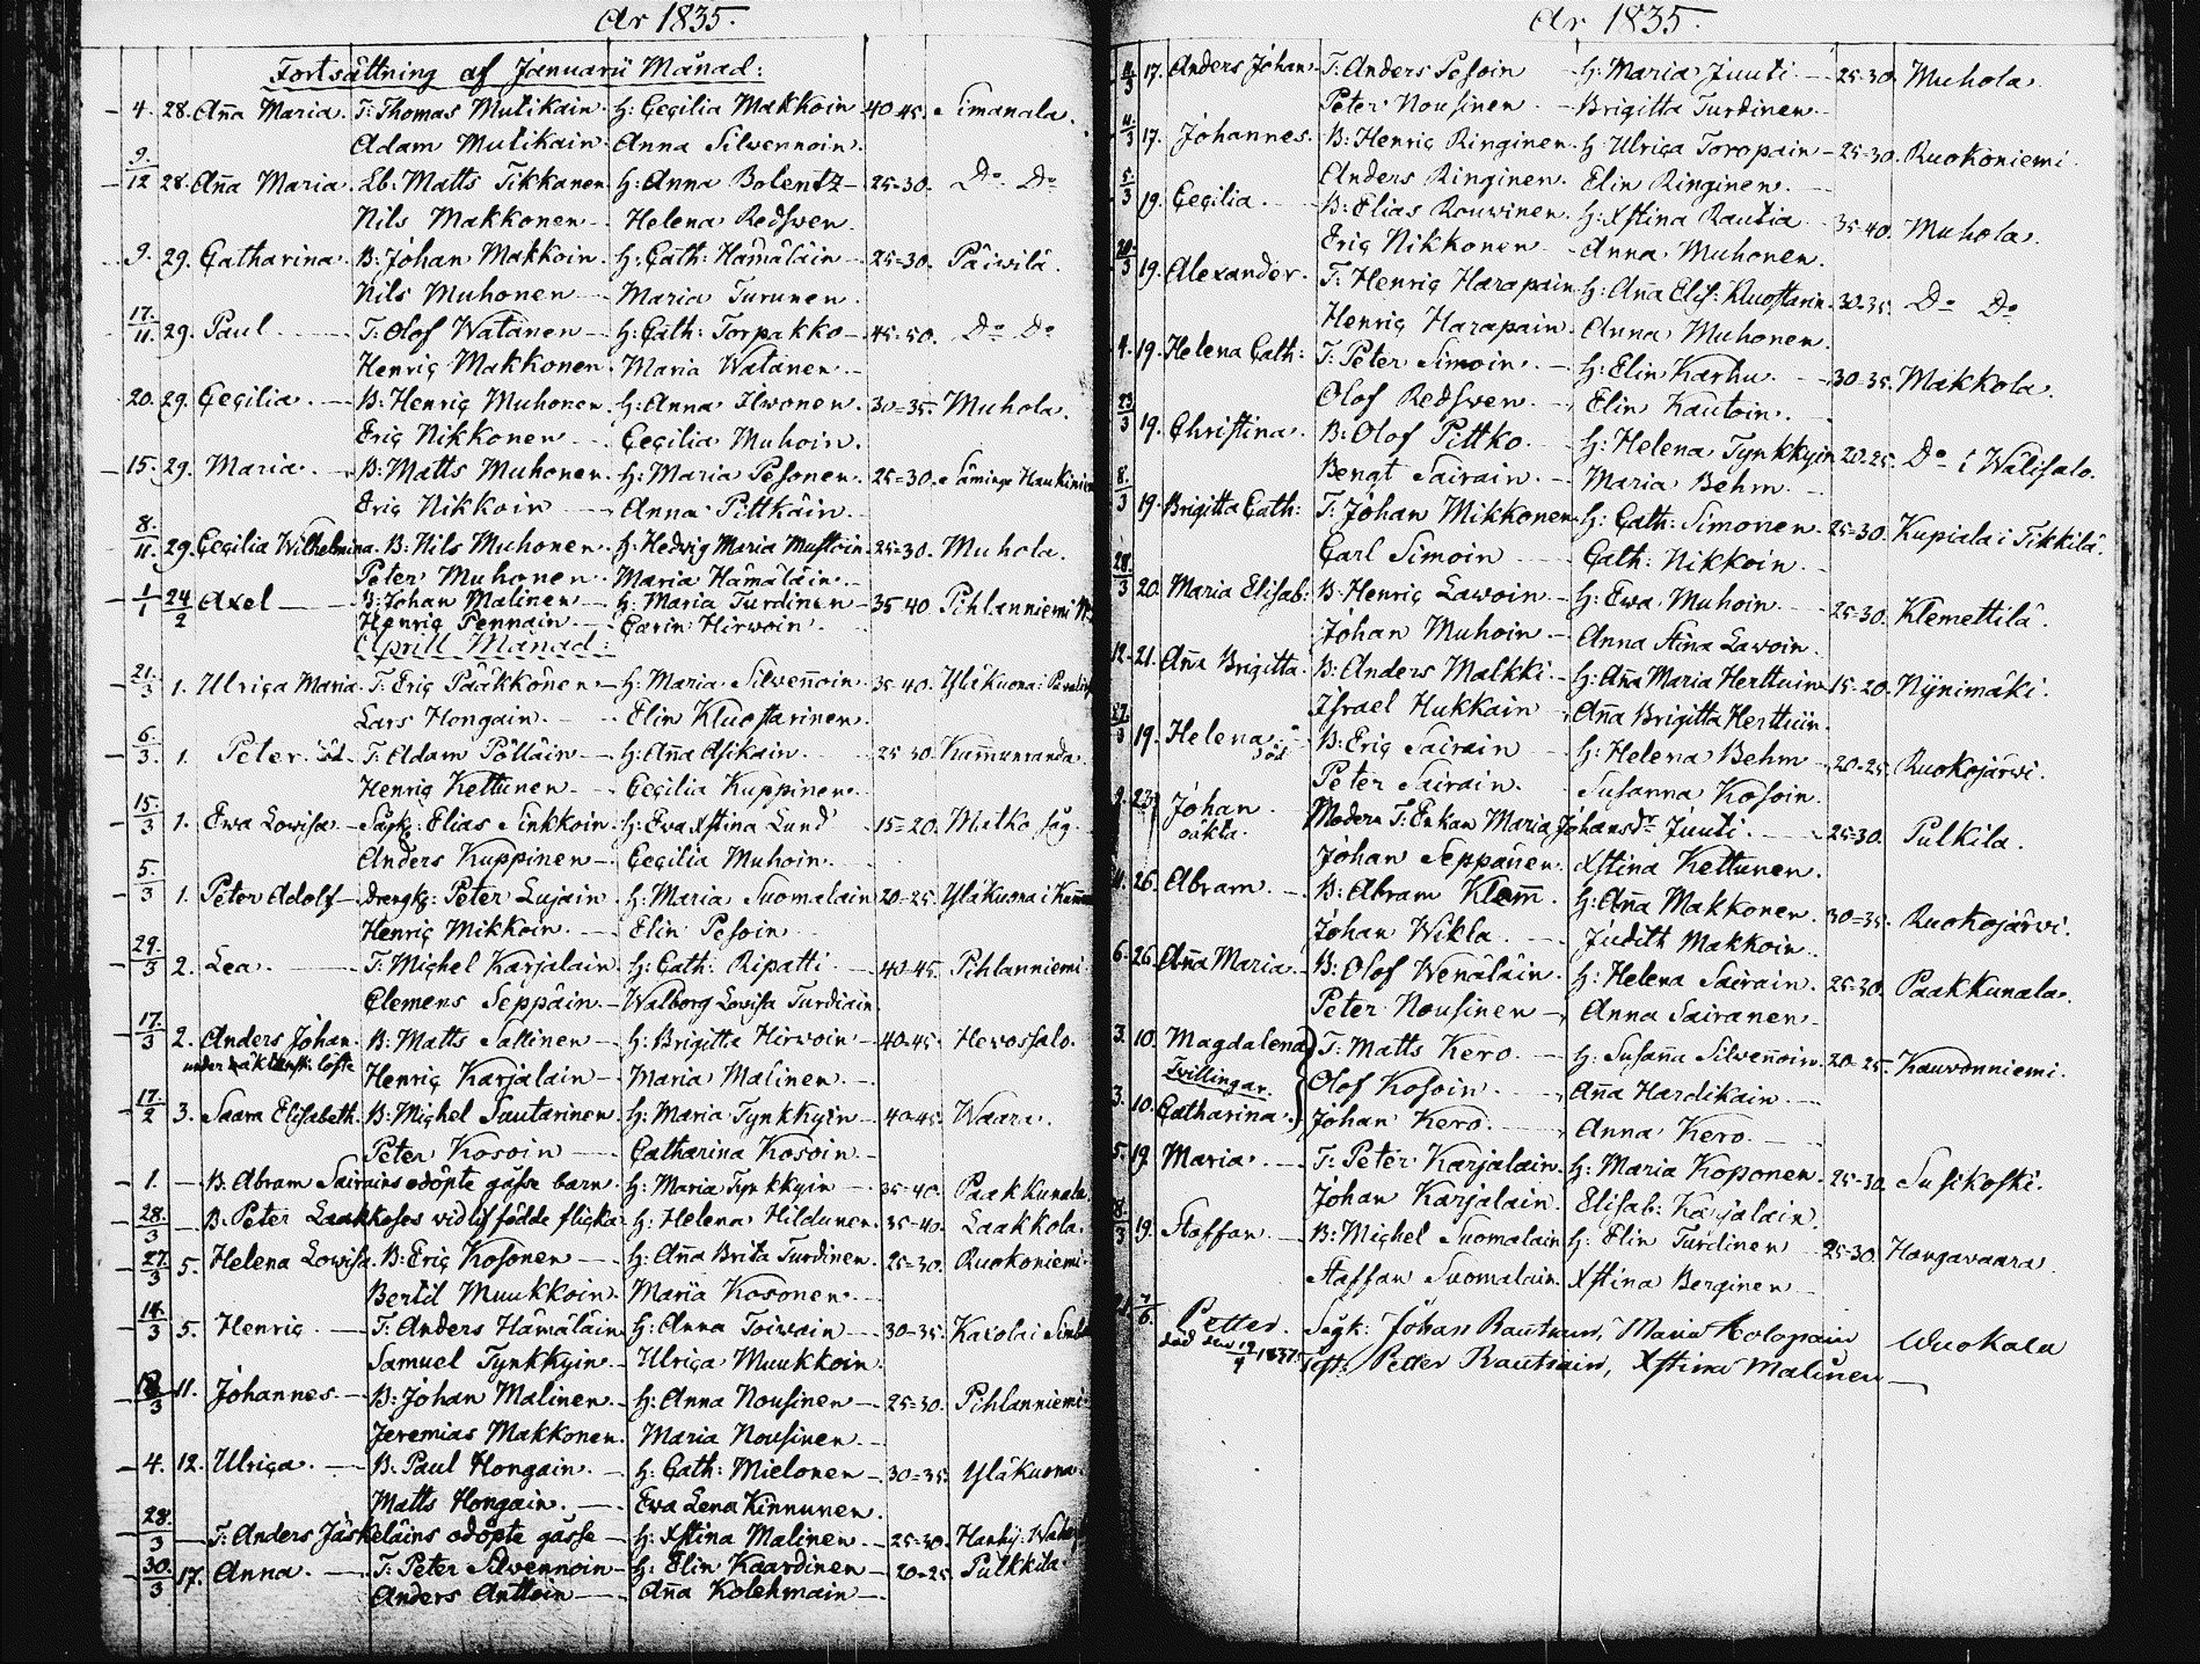 År 1835.
Fortsättning af Januarii Månad:
4. 28. Aña Maria. T: Thomas Mutikain. H: Cecilia Makkoin 40-45. Simanala.
Adam Mutikain. Anna Silvennoin.
9./12 28. Aña Maria. Lb: Matts Tikkanen H: Anna Bolentz 25=30. Do Do
Nils Makkonen Helena Redsven.
9. 29. Catharina. B: Johan Makkoin. H: Cath: Hämäläin 25=30. Päivilä.
Nils Muhonen Maria Turunen.
17./11. 29. Paul T: Olof Watanen H: Cath: Torpakko 45=50. Do Do
Henric Makkonen. Maria Watanen.
20. 29. Cecilia. B: Henric Muhonen. H: Anna Ilwonen. 30=35. Muhola.
Eric Nikkonen Cecilia Muhoin.
15. 29. Maria. B: Matts Muhonen. H: Maria Pesonen. 25=30. Säminge
Eric Nikkoin Anna Pittkäin.
8./11. 29. Cecilia Wilhelmina. B: Nils Muhonen. H: Hedvig Maria Mustoin 25=30. Muhola.
Peter Muhonen. Maria Hämäläin.
1/1 24/2 Axel B: Johan Malinen H: Maria Turdinen 35-40. Pihlanniemi
Henric Pennain. Carin Hirwoin.
Aprill Månad:
21./3 1. Ulrica Maria. T: Eric Pääkkönen. H: Maria Silveñoin. 35-40. Yläkuona i
Lars Hongain. Elin Kluostarinen.
6./3. 1. Peter. död. T: Adam Pölläin H: Aña Asikain. 25-30. Kam̃unranda.
Henric Kettunen Cecilia Kuppinen.
15./3 1. Ewa Lowisa. Sågk: Elias Sinkkoin. H: Eva Xstina Lund 15=20. Mutko såg.
Anders Kuppinen Cecilia Muhoin.
5./3 1. Peter Adolf Drengk: Peter Lujain H: Maria Suomalain 20=25. Yläkuona i
Henric Mikkoin. Elin Pesoin
29./3 2. Lea. T: Michel Karjalain H: Cath: Ripatti 40-45. Pihlanniemi
Clemens Seppäin. Walborg Lovisa Turdiain.
17./3 2. Anders Johan. B: Matts Sallinen H: Brigitta Hirvoin 40-45. Hevossalo.
under äktensk: löfte Henric Karjalain Maria Malinen.
17./2 3. Saara Elisabeth. B: Michel Sautarinen H: Maria Tynkkyin 40-45. Waara.
Peter Kosoin Catharina Kosoin.
1. B: Abram Sairains odöpte gåsse barn. H: Maria Tynkkyin 35-40. Paakkunala.
28./3 B: Peter Laakkoses vid lif födde flicka H: Helena Hildunen. 35-40. Laakkola.
27./3 5. Helena Lowisa. B: Eric Kosonen H: Aña Brita Turdinen. 25=30. Ruokoniemi.
Bertil Muukkoin. Maria Kosonen.
14./3 5. Henric. T: Anders Hämäläin. H: Anna Toivain 30=35. Kavola i
Samuel Tynkkyin. Ulrica Muukkoin.
18/3 11. Johannes. B: Johan Malinen. H: Anna Nousinen 25=30. Pihlanniemi.
Jeremias Makkonen. Maria Nousinen.
4. 12. Ulrica. B: Paul Hongain. H: Cath: Mielonen 30=35. Yläkuona.
Matts Hongain. Ewa Lena Kinnunen.
28./3 T: Anders Jäskeläins odöpte gåsse H: Xstina Malinen. 25=30.
30./3 17. Anna. T: Peter Silvennoin H: Elin Kaardinen 20=25. Pulkkila.
Anders Anttoin Aña Kolehmain
År 1835.
4/3 17. Anders Johan. T: Anders Pesoin H: Maria Juuti. 25=30. Muhola.
Peter Nousinen. Brigitta Turdinen.
11./3 17. Johannes. B: Henric Ringinen. H: Ulrica Toropain 25=30. Ruokoniemi.
Anders Ringinen. Elin Ringinen.
5./3 19. Cecilia. B: Elias Rouvinen. H: Xstina Rautia 35-40. Muhola.
Eric Nikkonen Anna Muhonen.
20./3 19. Alexander. T: Henric Harapain. H: Aña Elis: Kluostarin. 30=35. Do Do
Henric Harapain. Anna Muhonen.
4. 19. Helena Cath: T: Peter Simoin. H: Elin Karhu. 30=35. Makkola.
Olof Redsven. Elin Kautoin.
23/3 19. Christina. B: Olof Pittko. H: Helena Tynkkyin 20=25. Do i Wälisalo.
Bengt Sairain. Maria Behm.
8./3 19. Brigitta Cath: T: Johan Mikkonen. H: Cath: Simonen. 25=30. Kupiala i Tikkilä.
Carl Simoin Cath: Nikkoin.
28./3 20. Maria Elisab: B: Henric Lawoin. H: Ewa Muhoin. 25=30. Klemettilä.
Johan Muhoin. Anna Stina Lavoin.
12. 21. Aña Brigitta. B: Anders Malkki. H: Aña Maria Herttuin 15-20. Nynimäki.
Israel Hukkain Aña Brigitta Herttuin.
27./3 19. Helena. död B: Eric Sairain H: Helena Behm 20=25. Ruokojärvi.
Peter Sairain. Susanna Kosoin.
9. 23. Johan oäkta. Modern T: Enkan Maria Johansdr Juuti. 25=30. Pulkila.
Johan Seppänen. Xstina Kettunen.
11. 26. Abram. B: Abram Klem̃. H: Aña Makkonen. 30=35. Ruokojärvi.
Johan Wikla. Judith Makkoin.
6. 26. Aña Maria. B: Olof Wenäläin. H: Helena Sairain. 25=30. Paakkunala.
Peter Nousinen Anna Sairanen.
3. 10. Magdalena T: Matts Kero. H: Susaña Silveñoin. 20=25. Kauvonniemi.
Tvillingar. Olof Kosoin. Aña Hardikain.
3. 10. Catharina. Johan Kero. Anna Kero.
5. 19. Maria. T: Peter Karjalain. H: Maria Koponen. 25=30. Susikoski.
Johan Karjalain. Elisab: Karjalain.
8./3 19. Staffan. B: Michel Suomalain H: Elin Turdinen 25=30. Hangavaara.
Staffan Suomalain. Xstina Berginen
7/6. Petter. Sågk: Johan Rautiain, Maria Kolopain Wuokala
död den 19/4 1837. Test: Petter Rautiain, Xstina Malinen